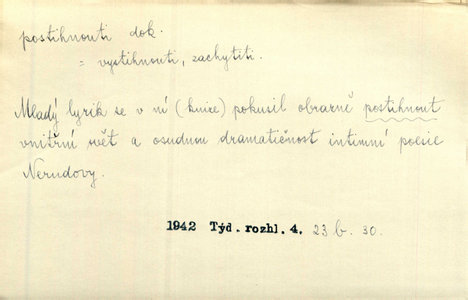 postihnouti dok.
= vystihnouti, zachytiti.
Mladý lyrik se v ní (knize) pokusil obrazně postihnout
vnitřní svět a osudnou dramatičnost intimní poesie
Nerudovy.
1942 Týd. rozhl. 4. 23 b. 30.